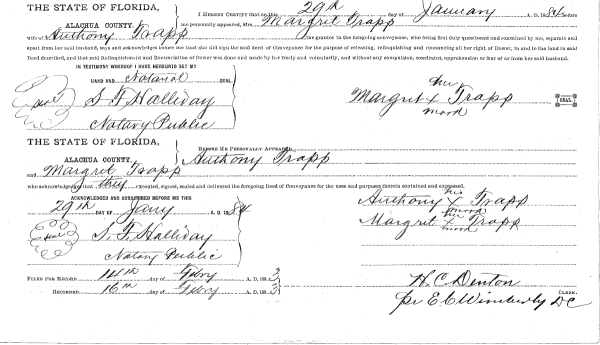 THE STATE OF FLORIDA,
ALACHUA COUNTY.
I HEREBY CERTIFY that on this 29th day of January A. D. 1884 before
me personally appeared, Mrs. Margret Trapp
wife of Anthony Trapp the grantor in the foregoing conveyance, who being first duly questioned and examined by me, separate and
apart from her said husband, says and acknowledges before me that she did sign the said deed of Conveyance for the purpose of releasing, relinquishing and renouncing all her right of Dower, in and to the land in said
Deed described, and that said Relinquishment and Renunciation of Dower was done and made by her freely and voluntarily, and without any compulsion, constraint, apprehension or fear of or from her said husband.
IN TESTIMONY WHEREOF I HAVE HEREUNTO SET MY
HAND AND Notarial SEAL
Seal S. F. Halliday
Notary Public
her
Margret X Trapp SEAL
mark
THE STATE OF FLORIDA,
ALACHUA COUNTY.
BEFORE ME PERSONALLY APPEARED
Anthony Trapp
and Margret Trapp
who acknowledges that they executed, signed, sealed and delivered the foregoing Deed of Conveyance for the uses and purposes therein contained and expressed.
ACKNOWLEDGED AND SUBSCRIBED BEFORE ME THIS
29th DAY OF Jany A. D. 1884
Seal S. F. Halliday
Notary Public
his
Anthony X Trapp
mark
her
Margret X Trapp
mark
FILED FOR RECORD 14th day of Febry A. D. 1893
RECORDED 16th day of Febry A. D. 1893
H. C. Denton
CLERK.
pr E C Wimberly DC